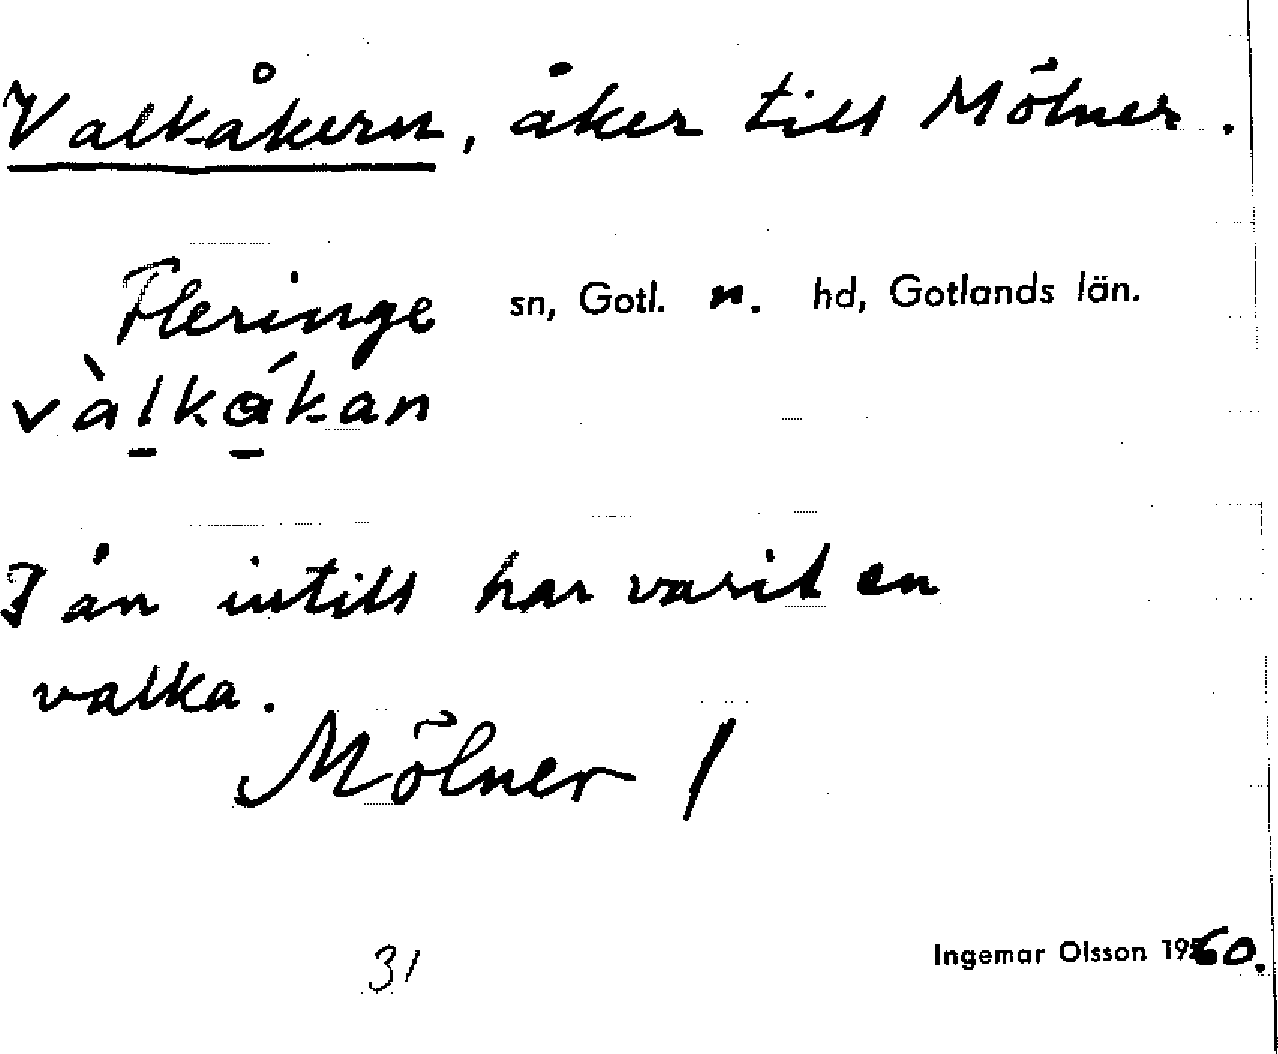 Valkåkern, åker till Mölner.
Fleringe sn, Gotl. n. hd, Gotlands län.
vàl̠ká̠kan
I ån intill har varit en
valka.
Mölner 1
31
Ingemar Olsson 1960.